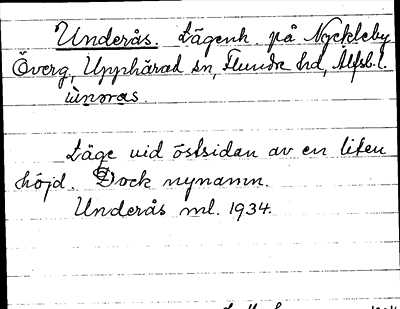 Underås. Lägenh. på Nyckleby
Överg, Upphärad sn, Flundre hd, Älfsb. l.
ùnoras.
Läge vid östsidan av en liten
höjd. Dock nynamn.
Underås ml. 1934.